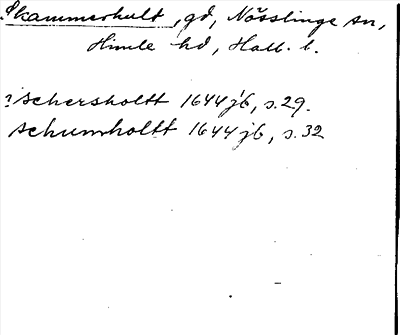 Skammerhult, gd, Nösslinge sn,
Himle hd, Hall. l.
? Schersholtt 1644 jb, s. 29.
Schumholtt 1644 jb, s. 32